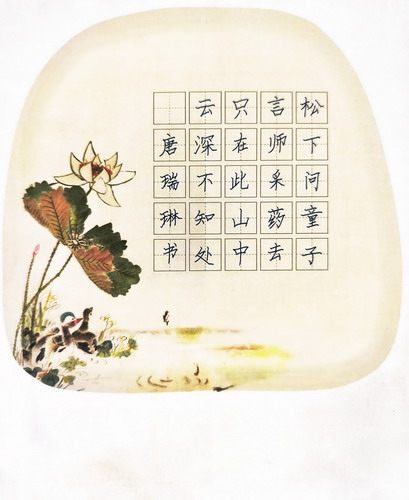 松下问童子
言师采药去
只在此山中
云深不知处
唐瑞琳书